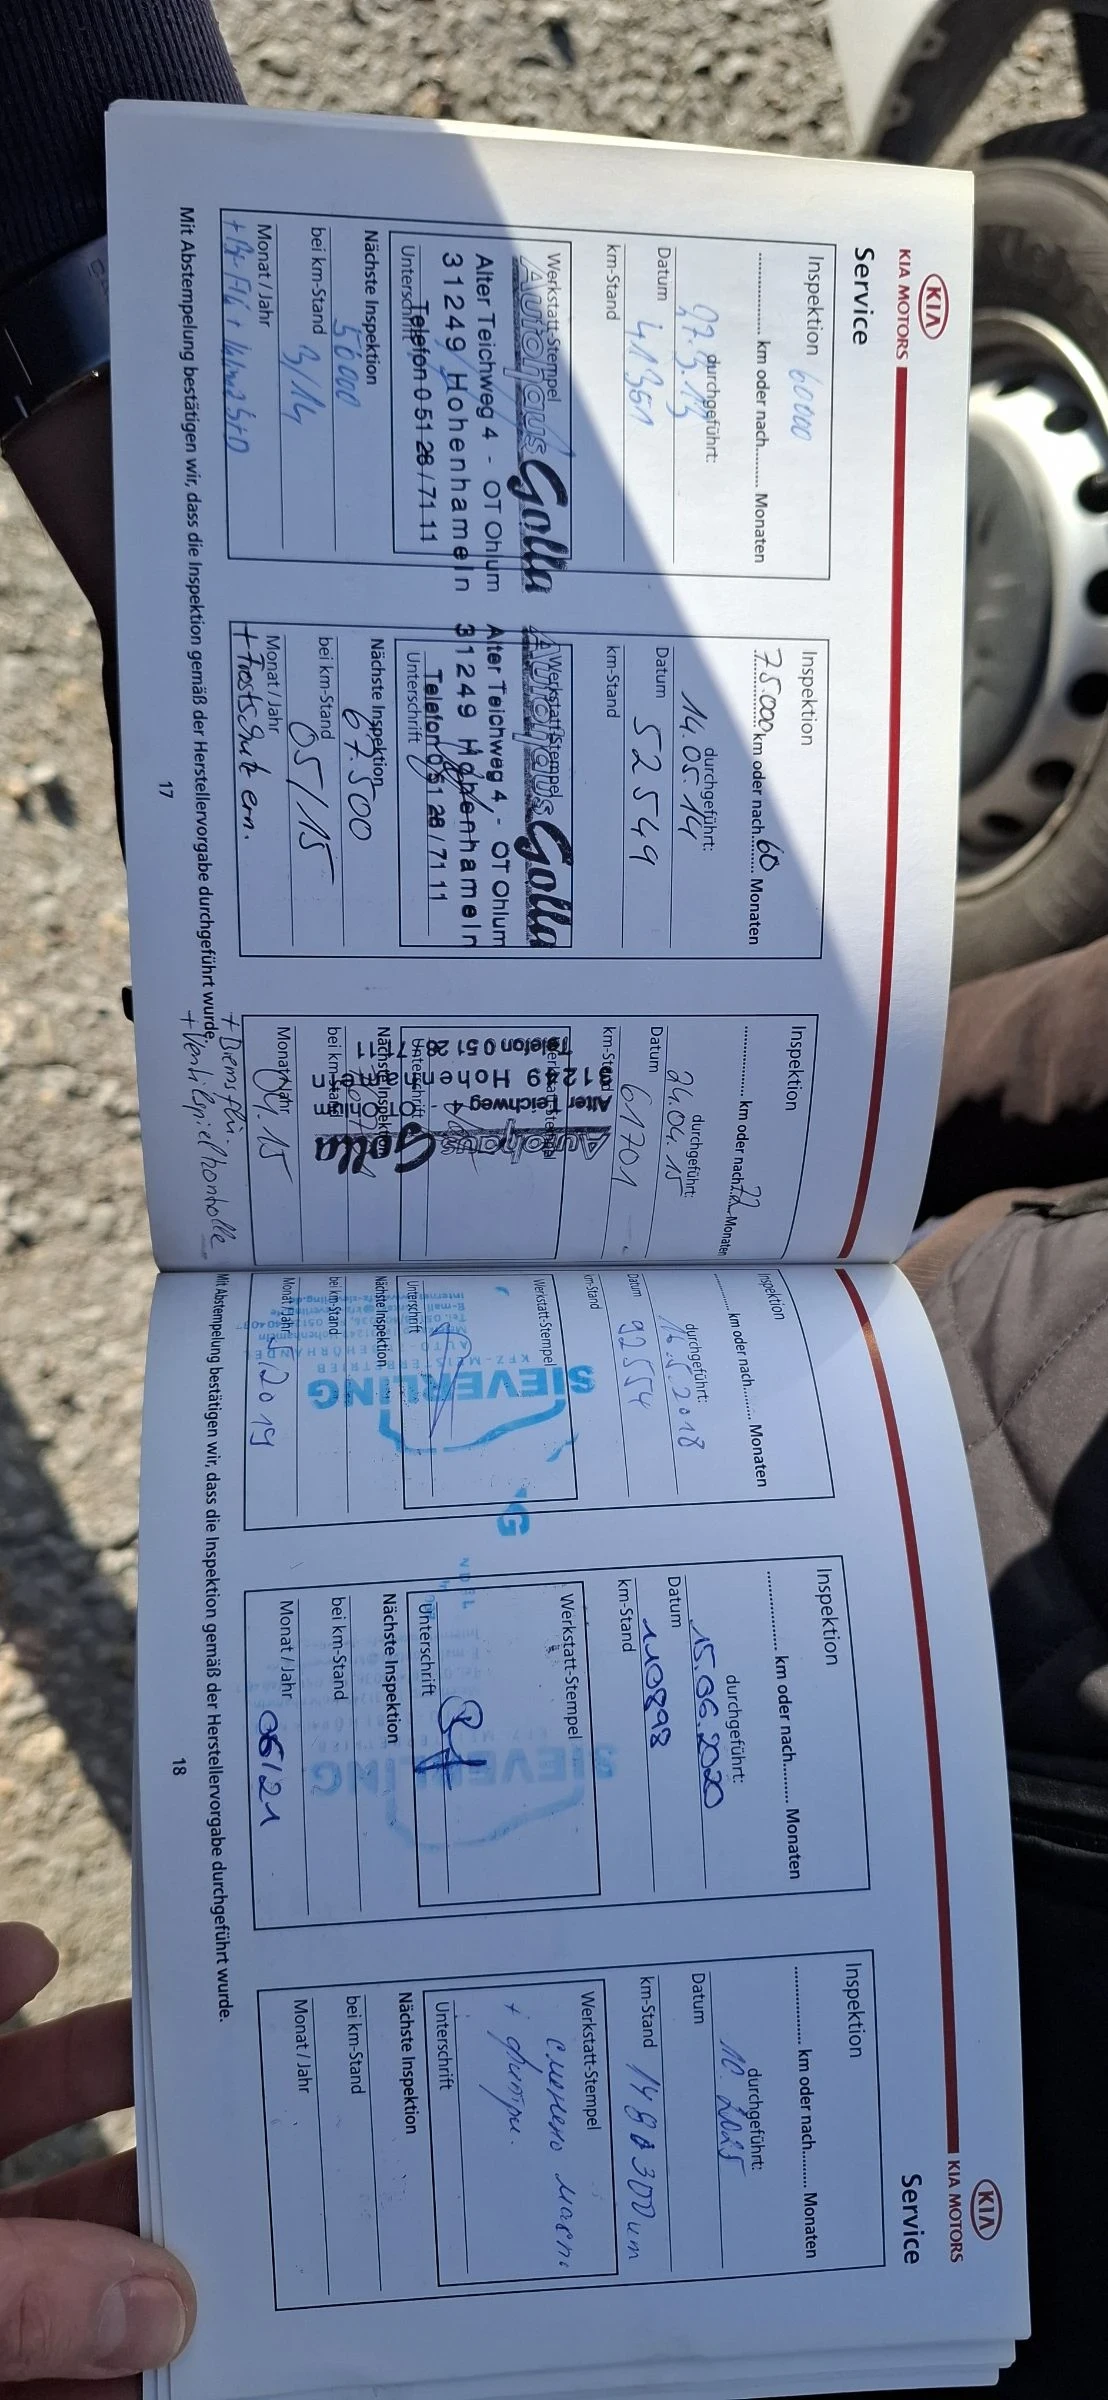 KIA
KIA MOTORS
Service
Inspektion 60000
............ km oder nach.......... Monaten
durchgeführt:
Datum
41351
km-Stand
Werkstatt-Stempel
Autohaus Golla
Alter Teichweg 4 - OT Ohlum
31249 Hohenhameln
Telefon 0 51 28 / 71 11
Unterschrift
Nächste Inspektion
56000
bei km-Stand
3/14
Monat / Jahr
Inspektion
75.000 km oder nach 60 Monaten
durchgeführt:
14.05.14
Datum
52549
km-Stand
Werkstatt-Stempel
Autohaus Golla
Alter Teichweg 4, - OT Ohlum
31249 Hohenhameln
Telefon 0 51 28 / 71 11
Unterschrift
Nächste Inspektion
67.500
bei km-Stand
05/15
Monat / Jahr
+ Frostschutz ern.
Inspektion
............ km oder nach 72 Monaten
durchgeführt:
24.04.15
Datum
61701
km-Stand
Werkstatt-Stempel
Autohaus Golla
Alter Teichweg 4 - OT Ohlum
31249 Hohenhameln
Telefon 0 51 28 / 71 11
Unterschrift
Nächste Inspektion
bei km-Stand
Monat / Jahr
Mit Abstempelung bestätigen wir, dass die Inspektion gemäß der Herstellervorgabe durchgeführt wurde.
17
KIA
KIA MOTORS
Service
Inspektion
............ km oder nach.......... Monaten
durchgeführt:
16.5.2018
Datum
92554
km-Stand
Werkstatt-Stempel
SIEVERLING
Unterschrift
Nächste Inspektion
bei km-Stand
5/2019
Monat / Jahr
Inspektion
............ km oder nach.......... Monaten
durchgeführt:
15.06.2020
Datum
110898
km-Stand
Werkstatt-Stempel
SIEVERLING
Unterschrift
Nächste Inspektion
bei km-Stand
Monat / Jahr 06/21
Inspektion
............ km oder nach.......... Monaten
durchgeführt:
10.2025
Datum
km-Stand
Werkstatt-Stempel
сменено масло
+ филтри.
Unterschrift
Nächste Inspektion
bei km-Stand
Monat / Jahr
Mit Abstempelung bestätigen wir, dass die Inspektion gemäß der Herstellervorgabe durchgeführt wurde.
18